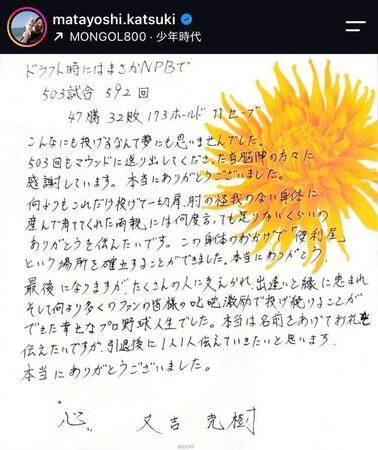 matayoshi.katsuki
MONGOL800・少年時代
ドラフト時にはまさかNPBで
503試合 592回
47勝 32敗 173ホールド 11セーブ
こんなにも投げるなんて夢にも思いませんでした。
503回もマウンドに送り出してくださった首脳陣の方々に
感謝しています。本当にありがとうございました。
何よりもこれだけ投げて一切肩、肘の怪我のない身体に
産んで育ててくれた両親には何度言っても足りないくらいの
ありがとうを伝えたいです。この身体のおかげで「便利屋」
という場所を確立することができました。本当にありがとう。
最後になりますが、たくさんの人に支えられ、出逢いと縁に恵まれ
そして何より多くのファンの皆様の叱咤激励で投げ続けることが
できた幸せなプロ野球人生でした。本当は名前をあげてお礼を
伝えたいですが、引退後に1人1人伝えていきたいと思います。
本当にありがとうございました。
"心" 又吉 克樹
MIDORI